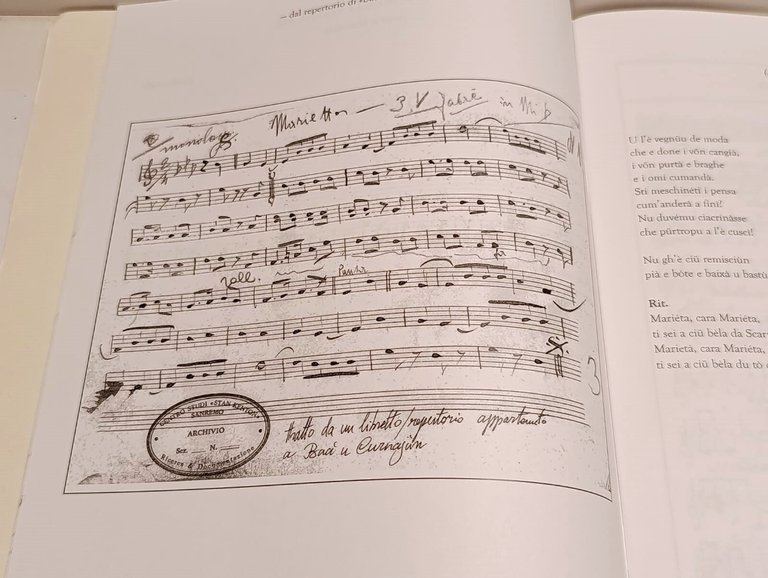 – dal repertorio di
Marietta — 3 V
in Mi b
monologo
roll.
Pausa
3
CENTRO STUDI «STAN KENTON»
SANREMO
ARCHIVIO
Sez. N.
Ricerca & Documentazione
tratto da un libretto/repertorio appartenuto
a Baci u Curnajùn
U l'è vegnüu de moda
che e done i vön cangià,
i vön purtà e braghe
e i omi cumandà.
Sti meschinéti i pensa
cum'anderà a finì?
Nu duvému ciacrinàsse
che pürtropu a l'è cusci!
Nu gh'è ciü remisciùn
pià e bòte e baixà u bastù
Rit.
Mariéta, cara Mariéta,
ti sei a ciü bèla da Scar
Marietà, cara Mariéta,
ti sei a ciü bèla du tò